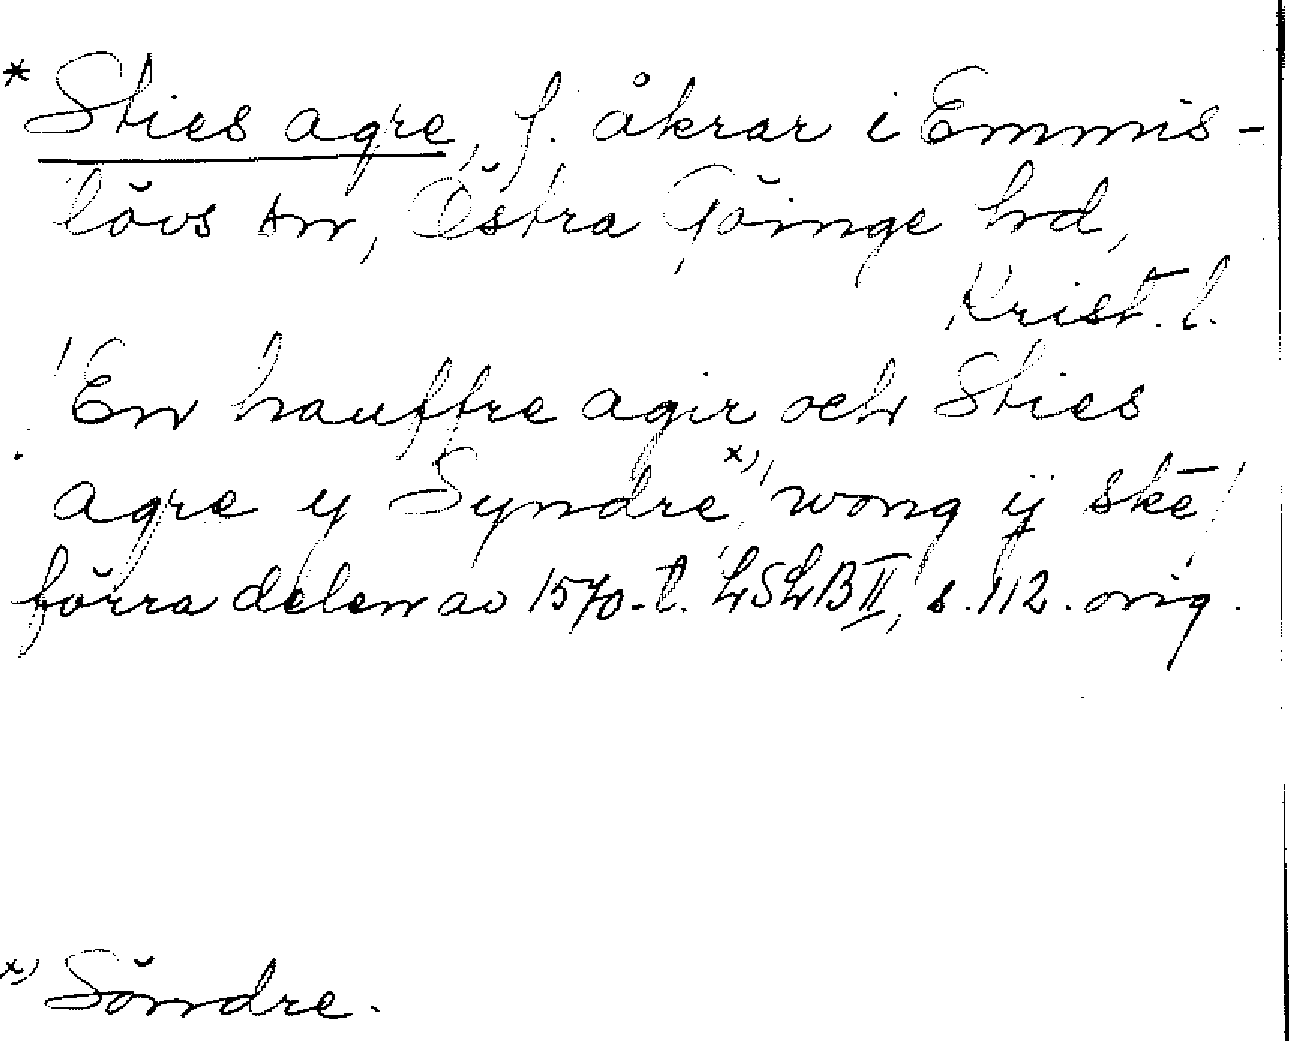 * Sties agre, f. åkrar i Emmis-
lövs sn, Östra Göinge hd,
Krist. l.
'En hauffre agir och Sties
agre y Syndre x) wong ij skē'
förra delen av 1570-t. LSLB II, s. 112. orig.
x) Söndre.